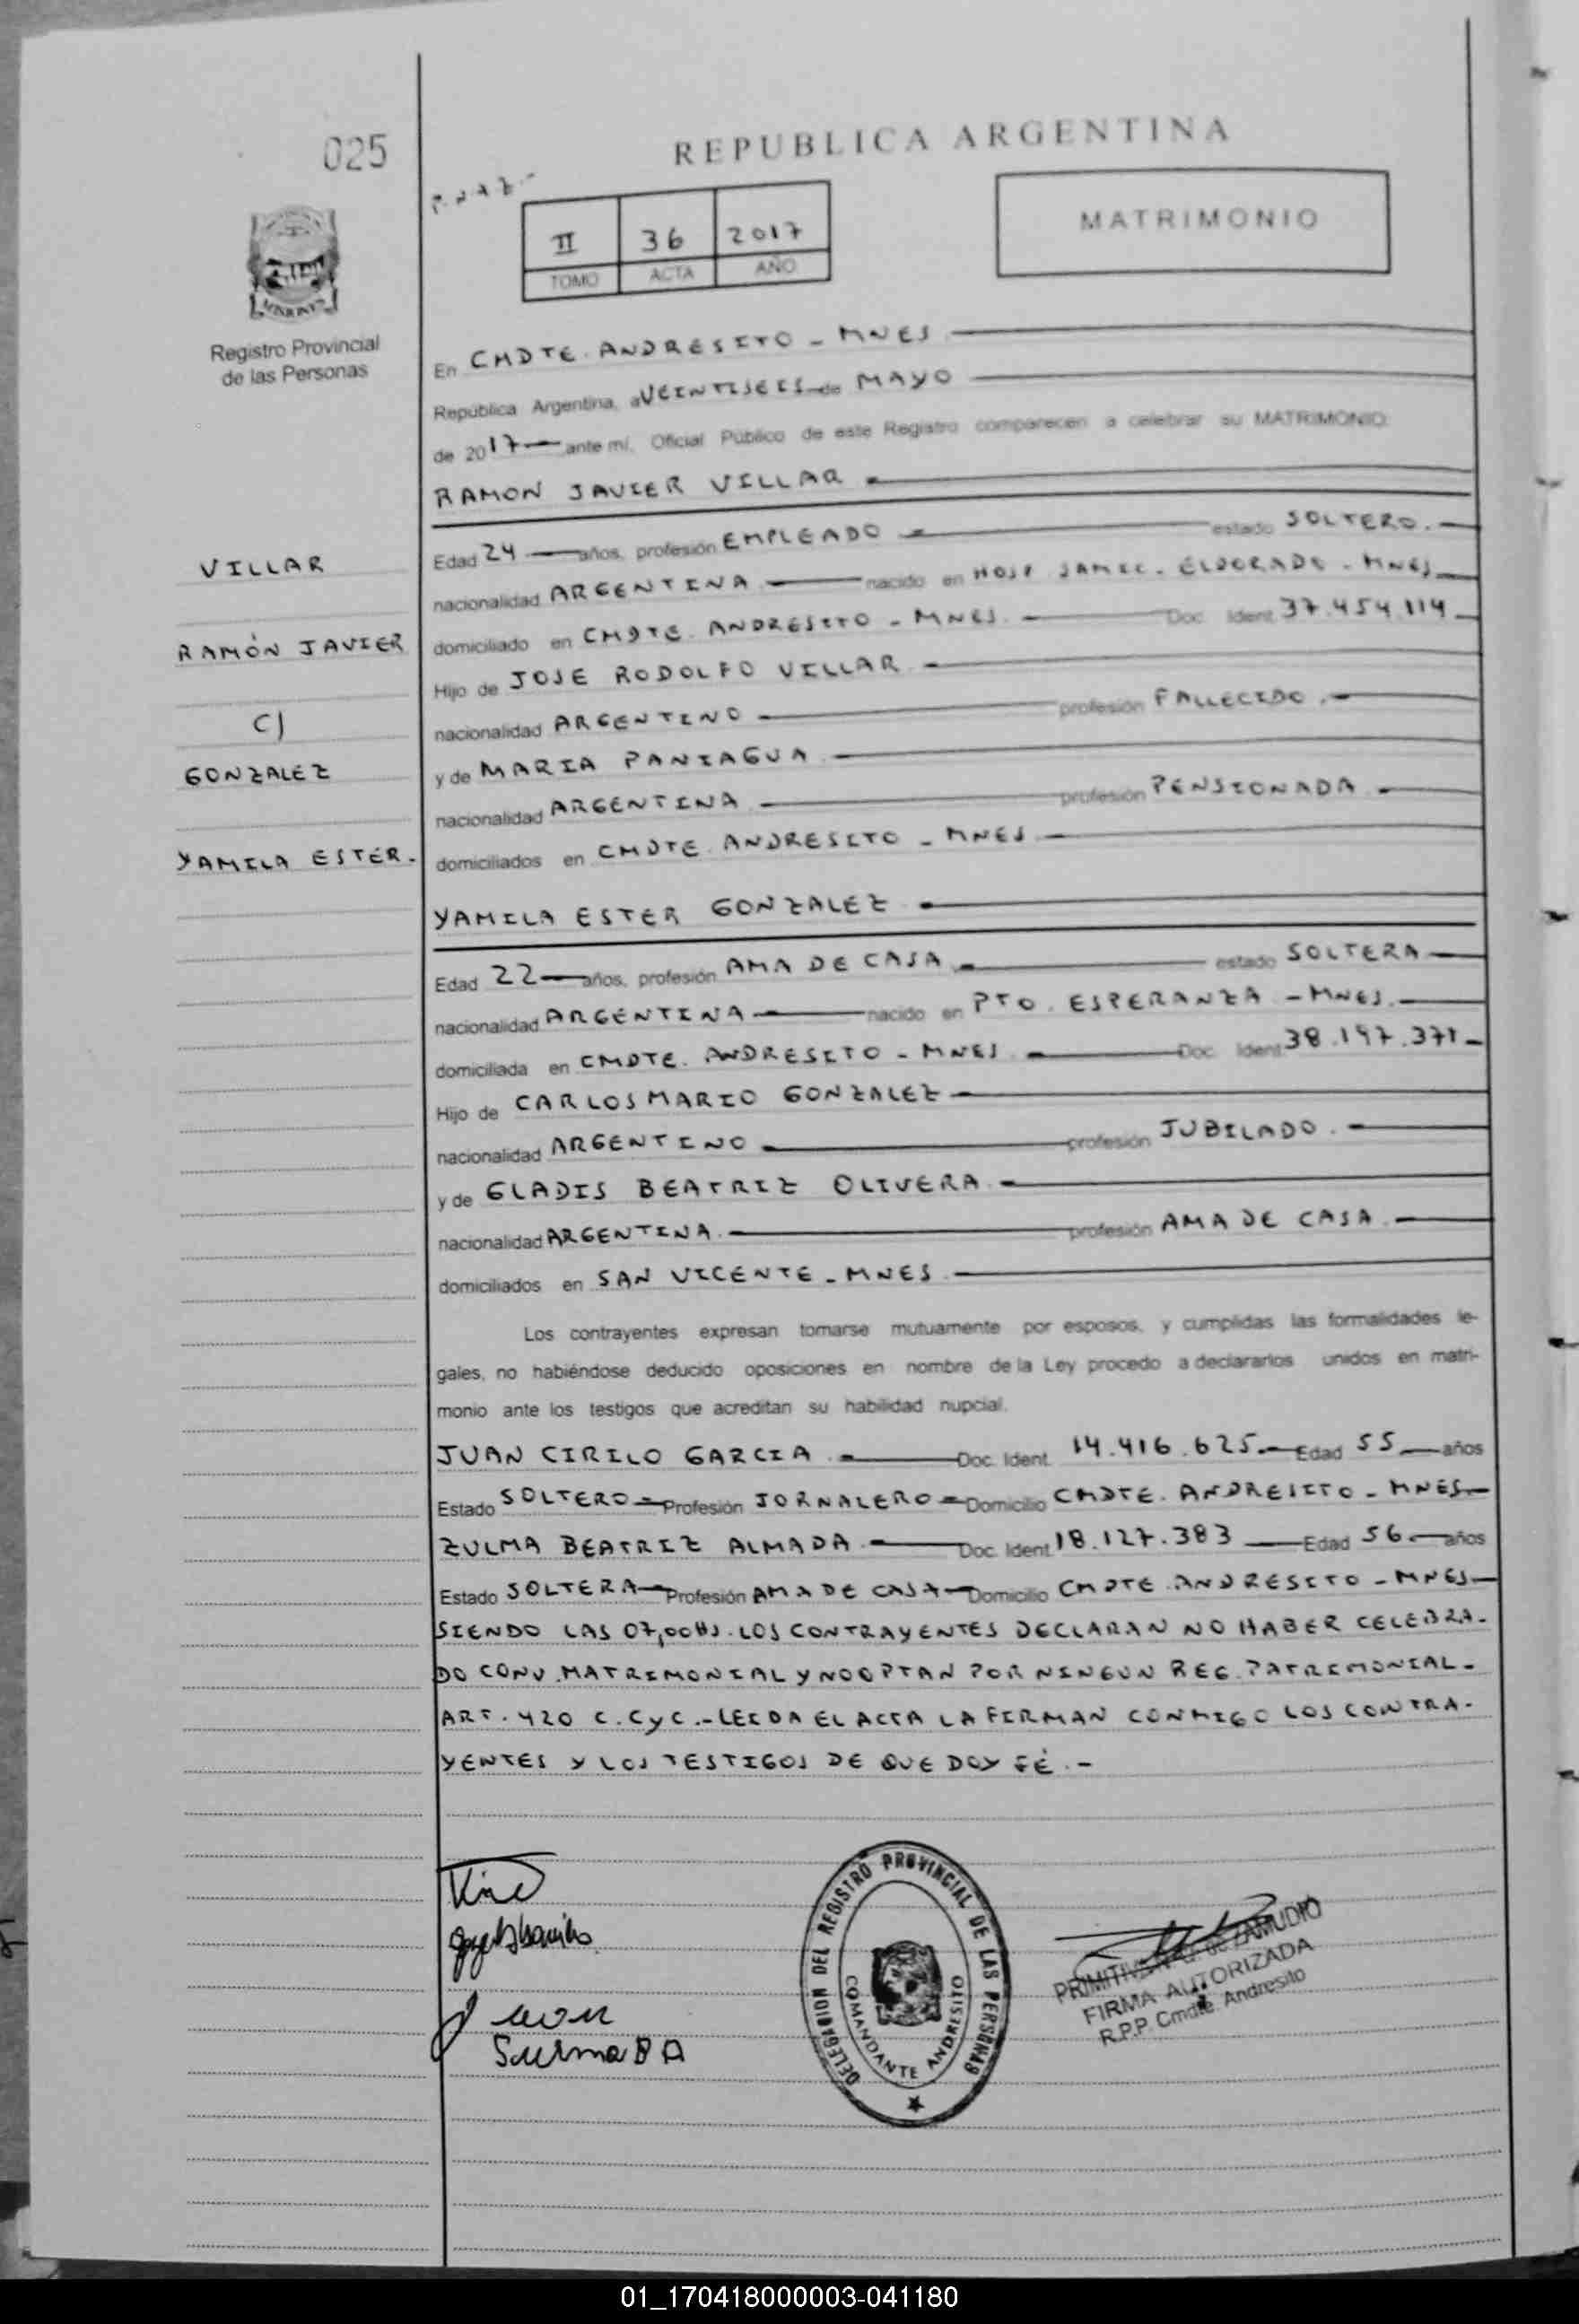 025
REPUBLICA ARGENTINA
II 36 2017
TOMO ACTA AÑO
MATRIMONIO
MISIONES
Registro Provincial
de las Personas
En CMDTE. ANDRESITO - MNES
República Argentina, a VEINTISEIS de MAYO
de 2017 ante mí, Oficial Público de este Registro comparecen a celebrar su MATRIMONIO:
RAMON JAVIER VILLAR
Edad 24 años, profesión EMPLEADO estado SOLTERO.
nacionalidad ARGENTINA nacido en HOSP. SAMIC - ELDORADO - MNES
domiciliado en CMDTE. ANDRESITO - MNES. Doc. Ident. 37.454.114
Hijo de JOSE RODOLFO VILLAR
nacionalidad ARGENTINO profesión FALLECIDO.
y de MARIA PANIAGUA
nacionalidad ARGENTINA profesión PENSIONADA
domiciliados en CMDTE. ANDRESITO - MNES
VILLAR
RAMÓN JAVIER
C/
GONZALEZ
YAMILA ESTER.
YAMILA ESTER GONZALEZ
Edad 22 años, profesión AMA DE CASA estado SOLTERA
nacionalidad ARGENTINA nacido en PTO. ESPERANZA - MNES.
domiciliada en CMDTE. ANDRESITO - MNES Doc. Ident. 38.197.371
Hijo de CARLOS MARIO GONZALEZ
nacionalidad ARGENTINO profesión JUBILADO.
y de GLADIS BEATRIZ OLIVERA
nacionalidad ARGENTINA. profesión AMA DE CASA.
domiciliados en SAN VICENTE - MNES
Los contrayentes expresan tomarse mutuamente por esposos, y cumplidas las formalidades le-
gales, no habiéndose deducido oposiciones en nombre de la Ley procedo a declararlos unidos en matri-
monio ante los testigos que acreditan su habilidad nupcial.
JUAN CIRILO GARCIA. Doc. Ident. 14.416.625. Edad 55 años
Estado SOLTERO Profesión JORNALERO Domicilio CMDTE. ANDRESITO - MNES
ZULMA BEATRIZ ALMADA Doc. Ident. 18.127.383 Edad 56 años
Estado SOLTERA Profesión AMA DE CASA Domicilio CMDTE. ANDRESITO - MNES
SIENDO LAS 07,00HS. LOS CONTRAYENTES DECLARAN NO HABER CELEBRA-
DO CONV. MATRIMONIAL Y NO OPTAN POR NINGUN REG. PATRIMONIAL-
ART. 420 C.CyC.- LEIDA EL ACTA LA FIRMAN CONMIGO LOS CONTRA-
YENTES Y LOS TESTIGOS DE QUE DOY FÉ.-
DELEGACION DEL REGISTRO PROVINCIAL DE LAS PERSONAS
COMANDANTE ANDRESITO
de ZAMUDIO
FIRMA AUTORIZADA
R.P.P. Cmdte. Andresito
01_170418000003-041180